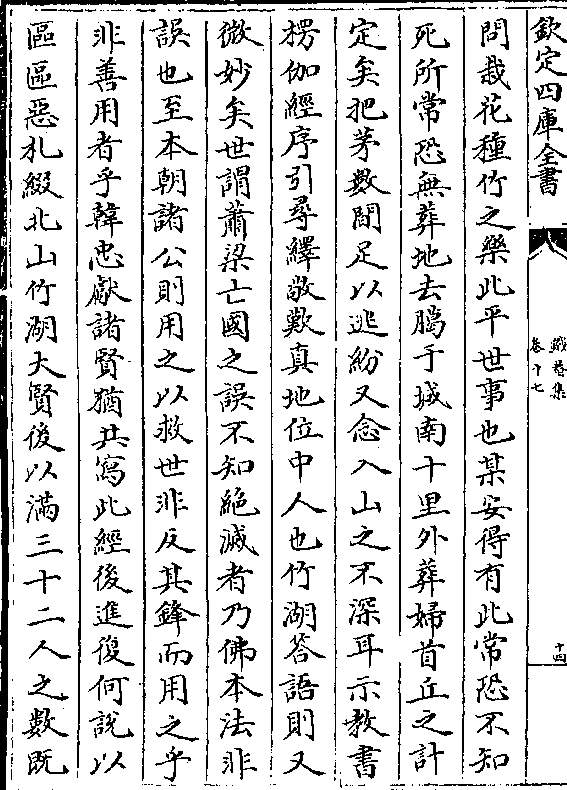 欽定四庫全書
鐵菴集
卷十七
十四
問栽花種竹之樂此平世事也某安得有此常恐不知
死所常恐無葬地去臈于城南十里外葬婦首丘之計
定矣把茅數間足以逃紛又念入山之不深耳示教書
楞伽經序引尋繹敬歎真地位中人也竹湖答語則又
微妙矣世謂蕭梁亡國之誤不知絶滅者乃佛本法非
誤也至本朝諸公則用之以救世非反其鋒而用之乎
非善用者乎韓忠獻諸賢猶共寫此經後進復何說以
區區惡札綴北山竹湖大賢後以滿三十二人之數既